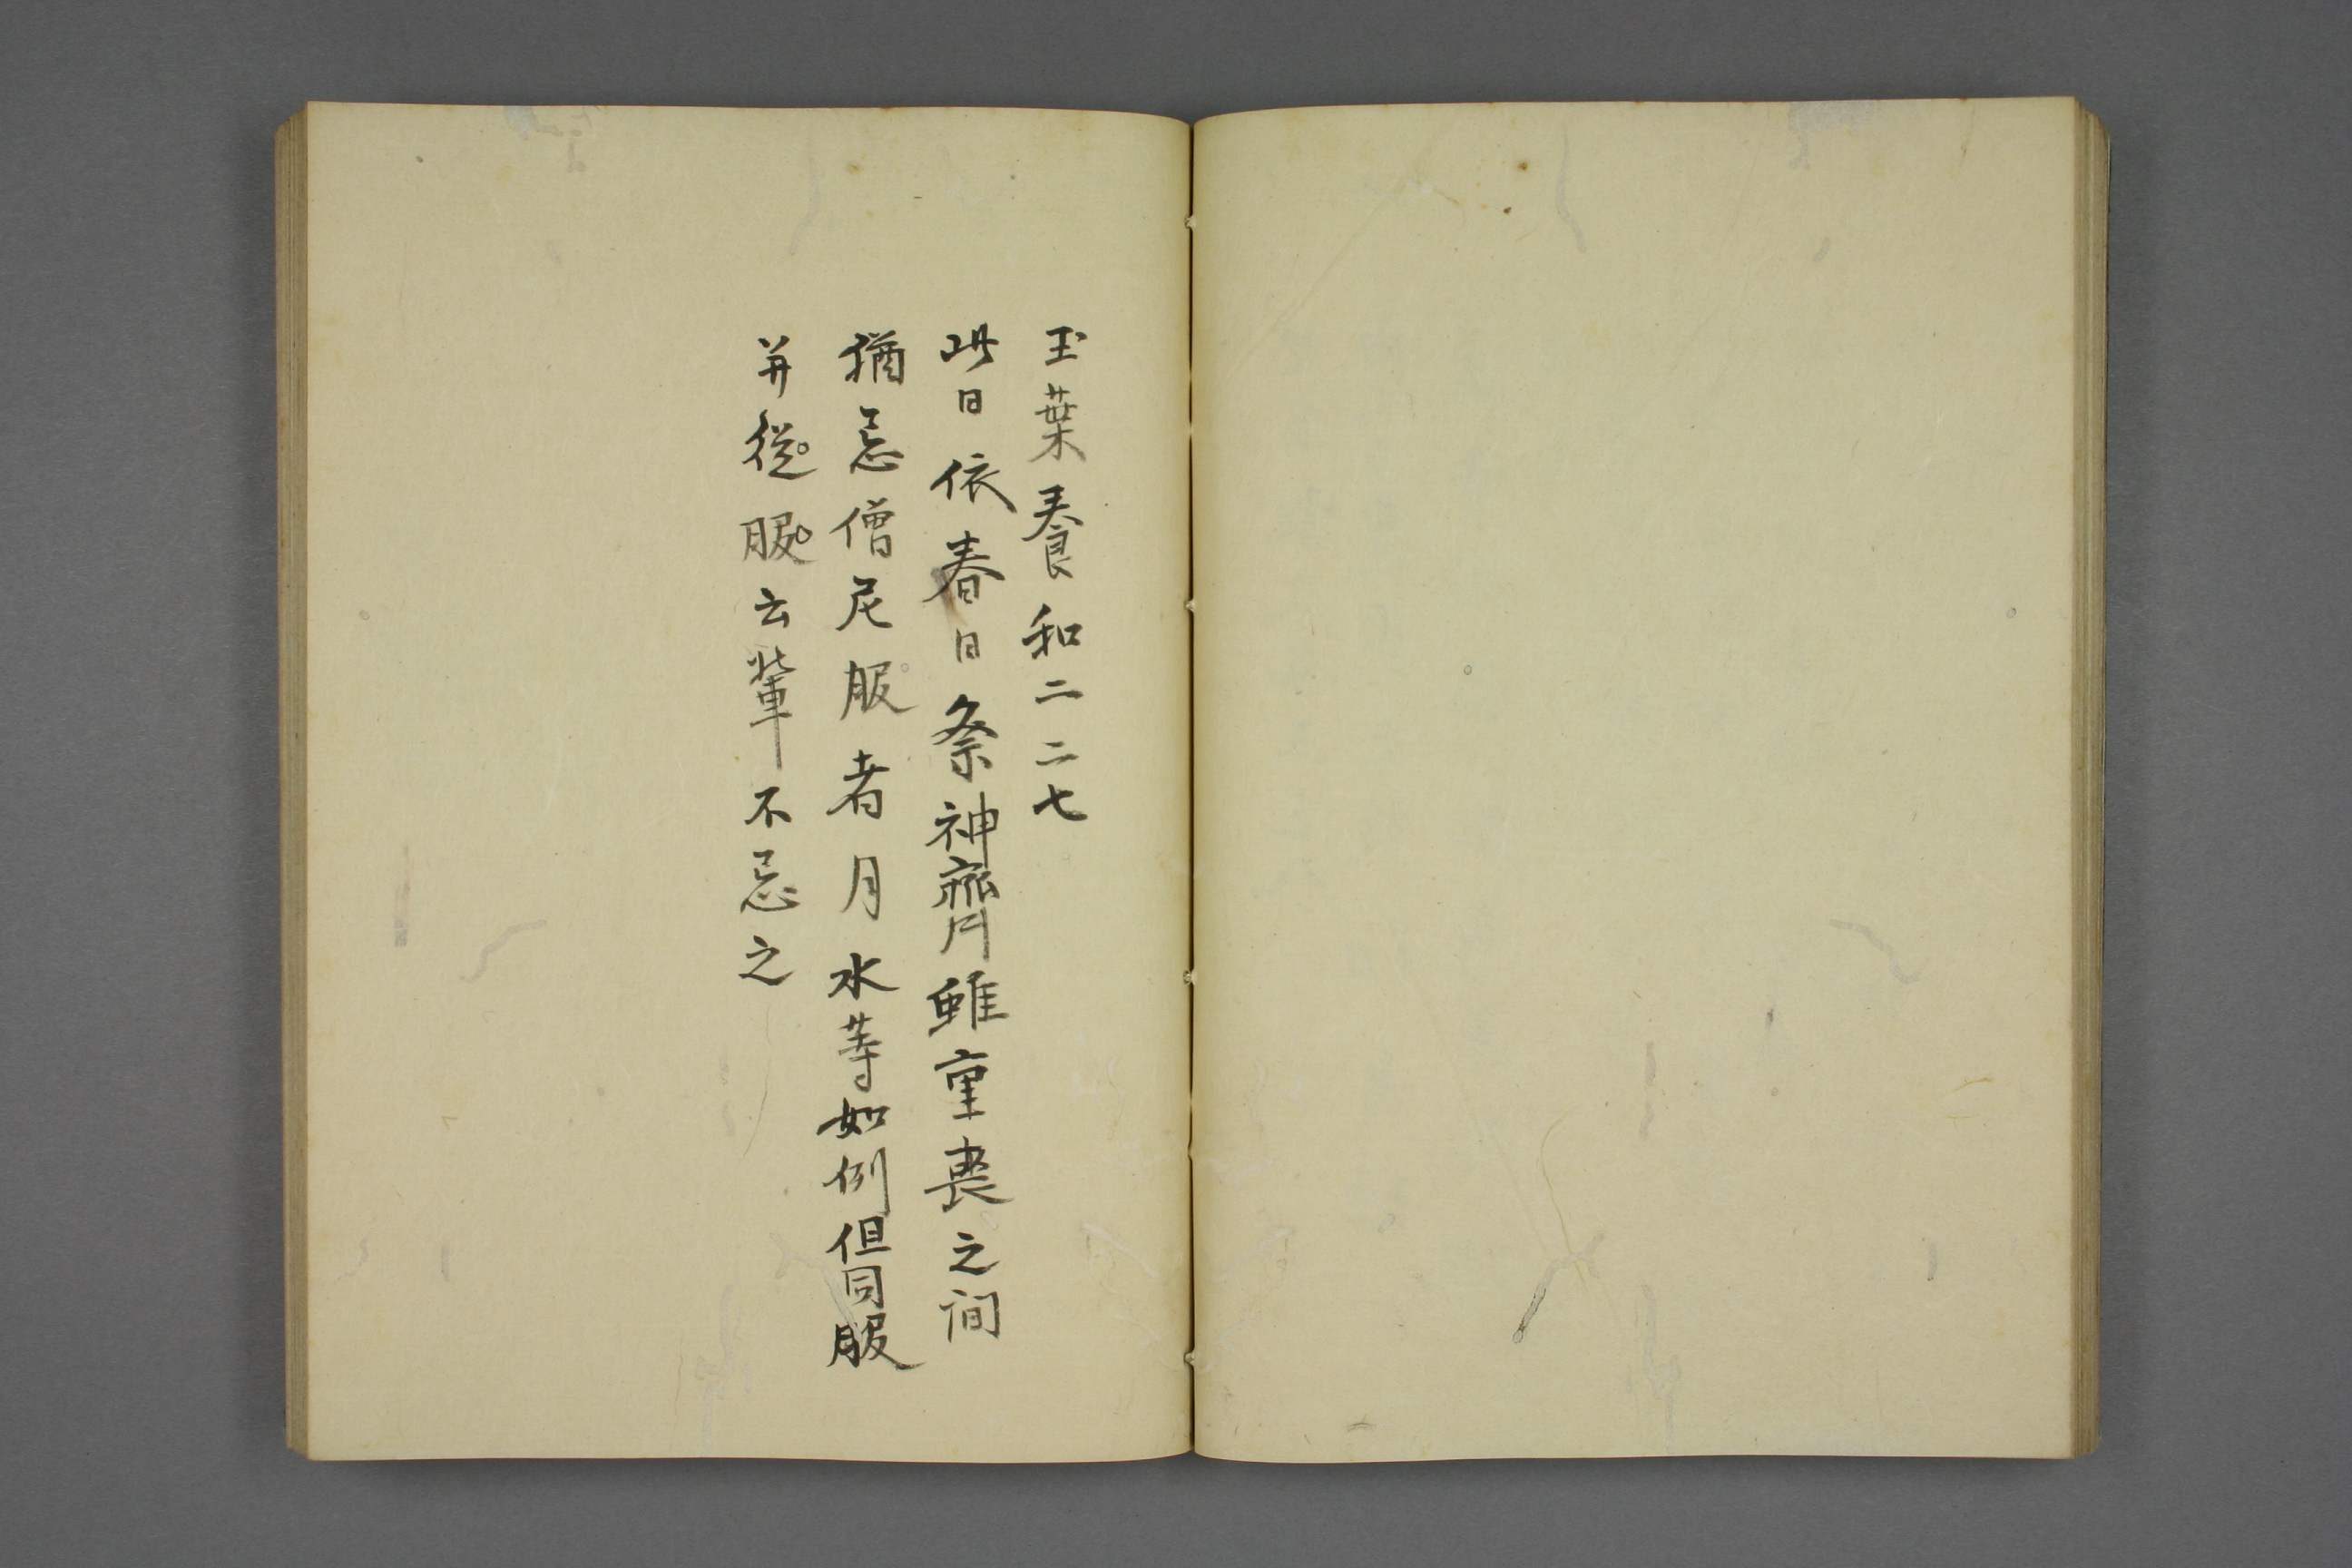 玉葉養和二二七
此日依春日祭神齊雖重喪之間
猶忌僧尼服者月水等如例但同服
并從服云輩不忌之